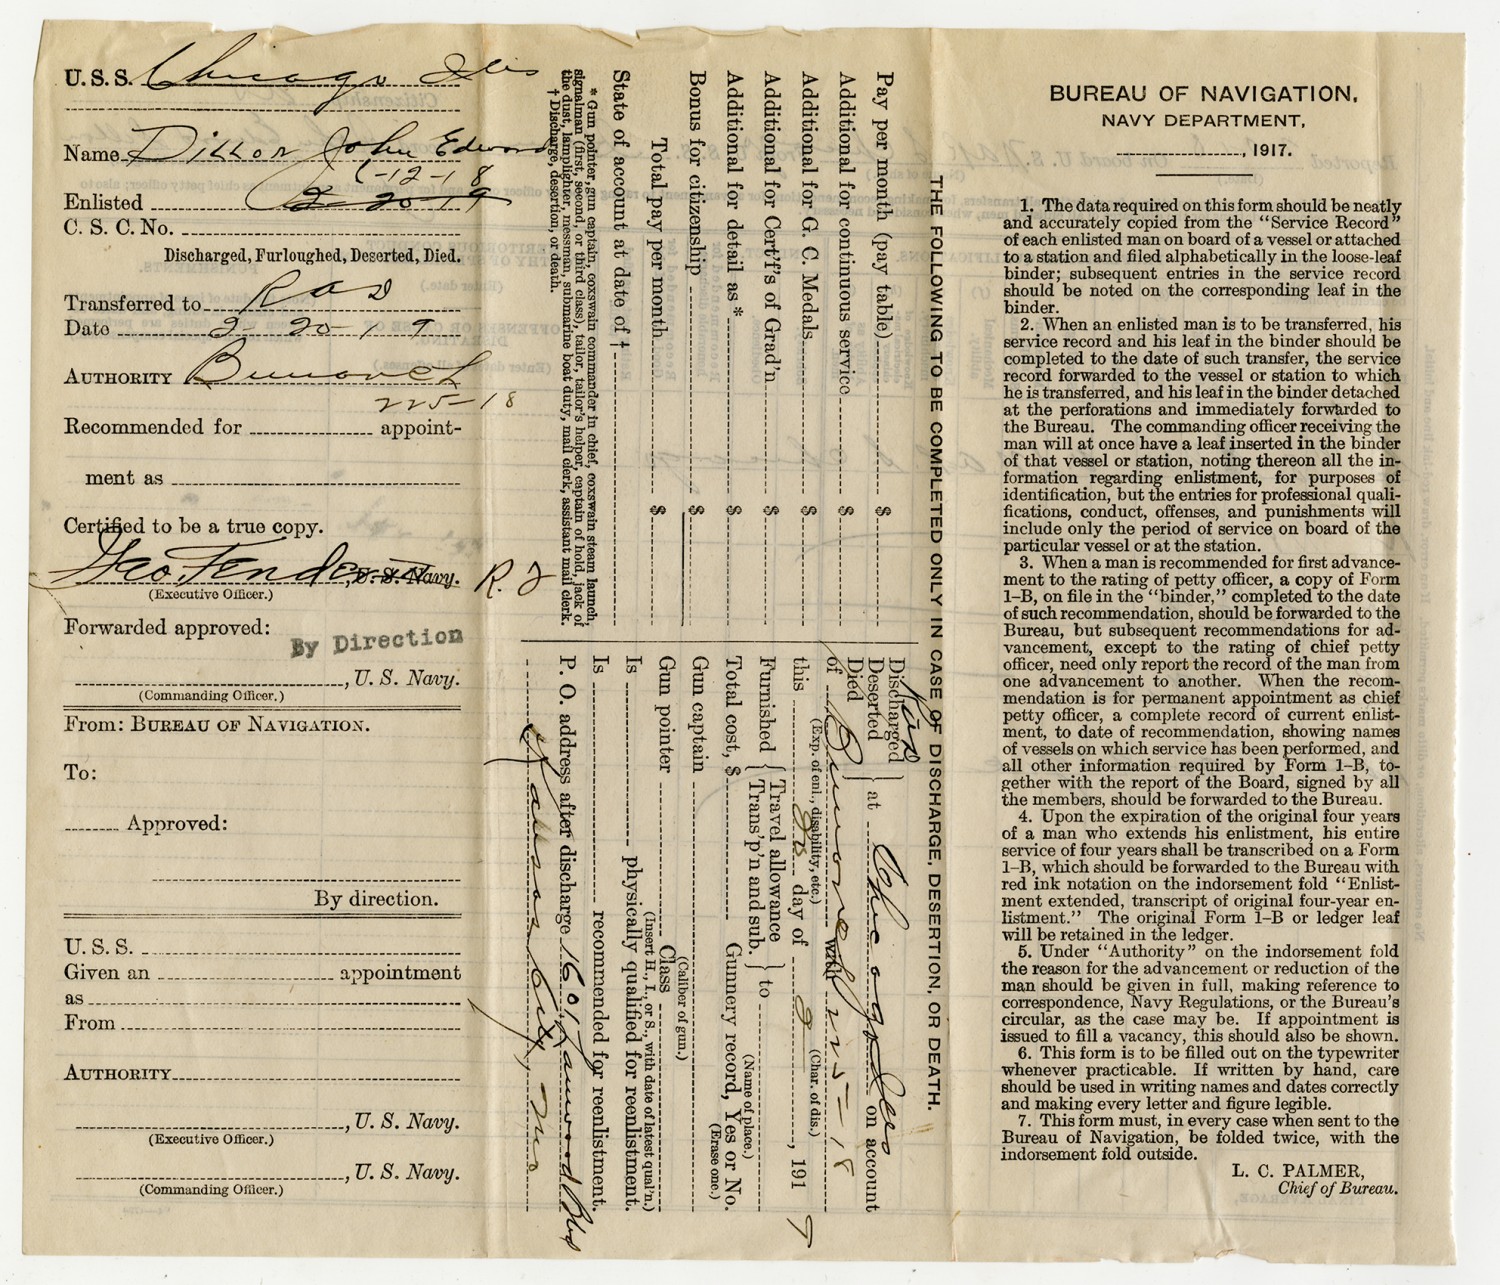 U. S. S. Chicago Ills
Name Dillon John Edward
6-12-18
Enlisted 2-20-19
C. S. C. No.
Discharged, Furloughed, Deserted, Died.
Transferred to
Date 2-20-19
AUTHORITY Bunav
225-18
Recommended for appoint-
ment as
Certified to be a true copy.
Geo. , U. S. Navy. R. F
(Executive Officer.)
Forwarded approved:
By Direction
, U. S. Navy.
(Commanding Officer.)
From: BUREAU OF NAVIGATION.
To:
Approved:
By direction.
U. S. S.
Given an appointment
as
From
AUTHORITY
, U. S. Navy.
(Executive Officer.)
, U. S. Navy.
(Commanding Officer.)
THE FOLLOWING TO BE COMPLETED ONLY IN CASE OF DISCHARGE, DESERTION, OR DEATH.
Pay per month (pay table) $
Additional for continuous service $
Additional for G. C. Medals $
Additional for Cert'f's of Grad'n $
Additional for detail as* $
Bonus for citizenship $
Total pay per month $
State of account at date of †
* Gun pointer, gun captain, coxswain commander in chief, coxswain steam launch,
signalman (first, second, or third class), tailor, tailor's helper, captain of hold, jack of
the dust, lamplighter, messman, submarine boat duty, mail clerk, assistant mail clerk.
† Discharge, desertion, or death.
Discharged
Deserted } at Chicago Ills on account
Died
of Bunav with 225-18
(Exp. of enl., disability, etc.) (Char. of dis.)
this 20 day of 2, 1919
Furnished { Travel allowance
Trans'p'n and sub. } to
(Name of place.)
Total cost, $ Gunnery record, Yes or No.
(Erase one.)
Gun captain
(Caliber of gun.)
Gun pointer Class
(Insert H., I., or S., with date of latest qual'n.)
Is physically qualified for reenlistment.
Is recommended for reenlistment.
P. O. address after discharge 1601 Blvd
Kansas City, Mo
BUREAU OF NAVIGATION,
NAVY DEPARTMENT,
, 1917.
1. The data required on this form should be neatly
and accurately copied from the "Service Record"
of each enlisted man on board of a vessel or attached
to a station and filed alphabetically in the loose-leaf
binder; subsequent entries in the service record
should be noted on the corresponding leaf in the
binder.
2. When an enlisted man is to be transferred, his
service record and his leaf in the binder should be
completed to the date of such transfer, the service
record forwarded to the vessel or station to which
he is transferred, and his leaf in the binder detached
at the perforations and immediately forwarded to
the Bureau. The commanding officer receiving the
man will at once have a leaf inserted in the binder
of that vessel or station, noting thereon all the in-
formation regarding enlistment, for purposes of
identification, but the entries for professional quali-
fications, conduct, offenses, and punishments will
include only the period of service on board of the
particular vessel or at the station.
3. When a man is recommended for first advance-
ment to the rating of petty officer, a copy of Form
1-B, on file in the "binder," completed to the date
of such recommendation, should be forwarded to the
Bureau, but subsequent recommendations for ad-
vancement, except to the rating of chief petty
officer, need only report the record of the man from
one advancement to another. When the recom-
mendation is for permanent appointment as chief
petty officer, a complete record of current enlist-
ment, to date of recommendation, showing names
of vessels on which service has been performed, and
all other information required by Form 1-B, to-
gether with the report of the Board, signed by all
the members, should be forwarded to the Bureau.
4. Upon the expiration of the original four years
of a man who extends his enlistment, his entire
service of four years shall be transcribed on a Form
1-B, which should be forwarded to the Bureau with
red ink notation on the indorsement fold "Enlist-
ment extended, transcript of original four-year en-
listment." The original Form 1-B or ledger leaf
will be retained in the ledger.
5. Under "Authority" on the indorsement fold
the reason for the advancement or reduction of the
man should be given in full, making reference to
correspondence, Navy Regulations, or the Bureau's
circular, as the case may be. If appointment is
issued to fill a vacancy, this should also be shown.
6. This form is to be filled out on the typewriter
whenever practicable. If written by hand, care
should be used in writing names and dates correctly
and making every letter and figure legible.
7. This form must, in every case when sent to the
Bureau of Navigation, be folded twice, with the
indorsement fold outside.
L. C. PALMER,
Chief of Bureau.